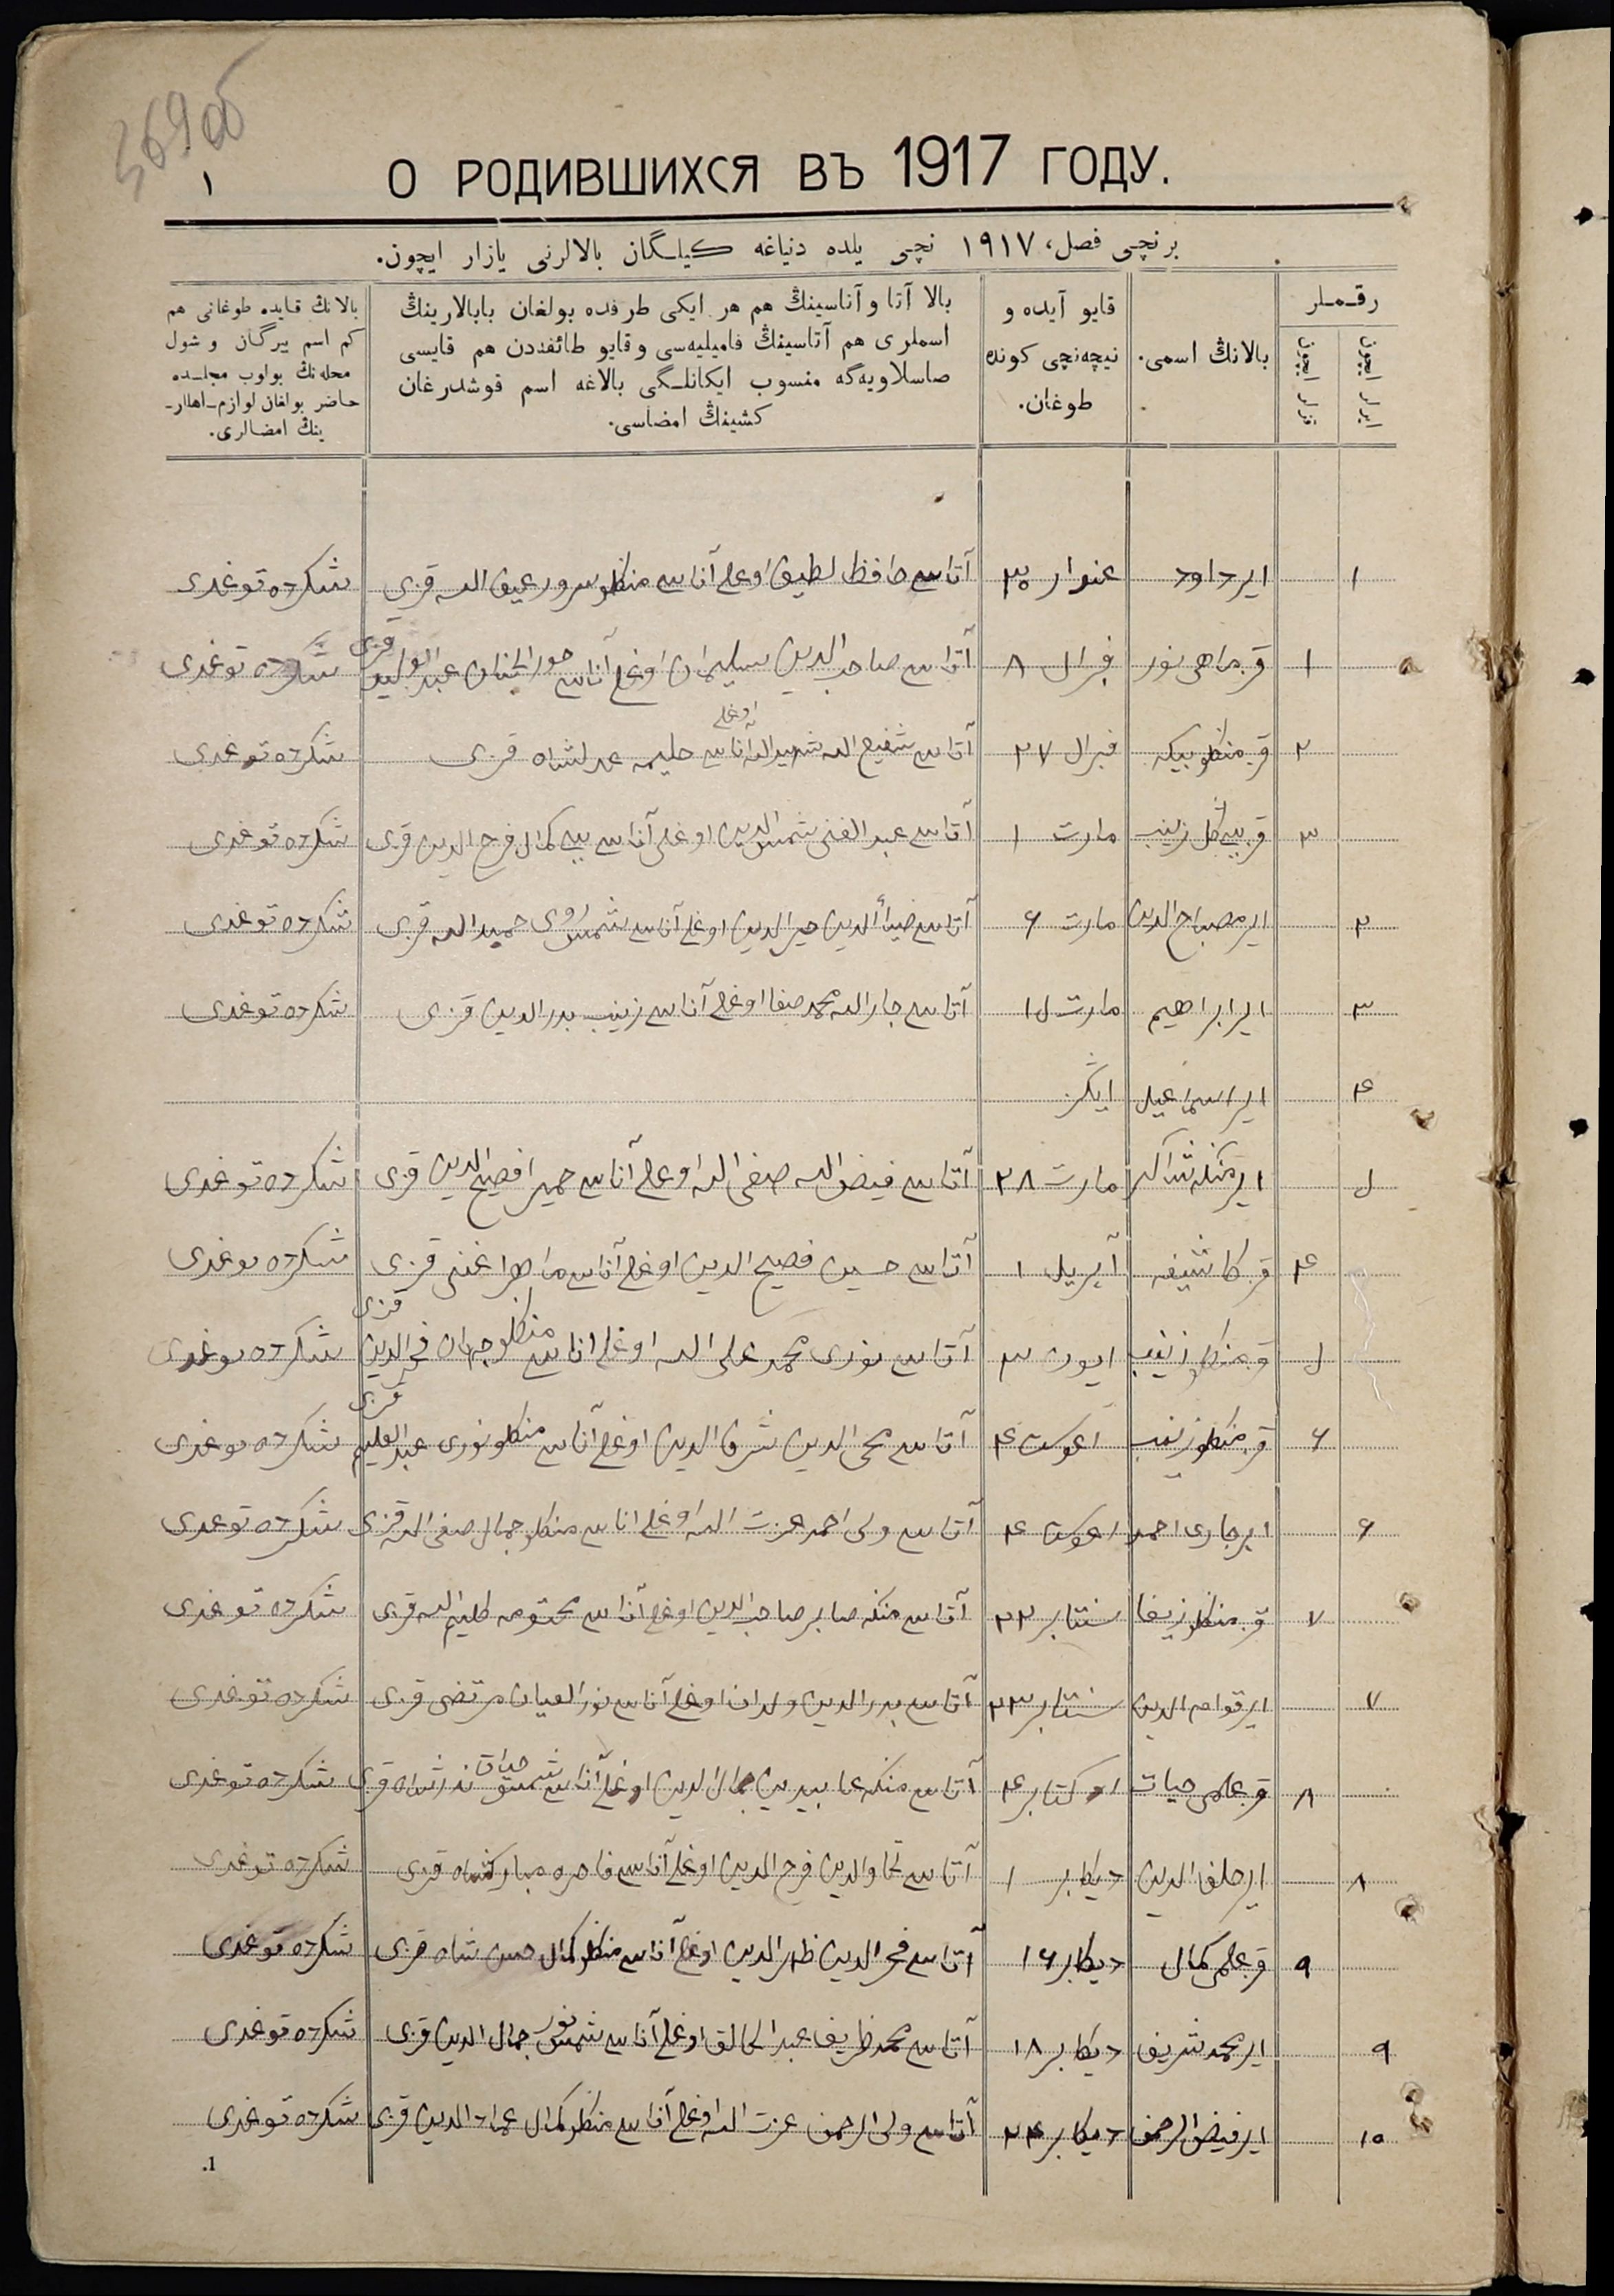 369 об
١
О РОДИВШИХСЯ ВЪ 1917 ГОДУ.
برنچی فصل، ١٩١٧ نچی یلده دنیاغه کیلـگان بالالرنی یازار ایچون.
رقـمـلر
ایرلر ایچون
قزلر ایچون
بالانڭ اسمی.
قایو آیده و نیچه‌نچی کونده طوغان.
بالا آتا و آناسینڭ هم هر ایکی طرفده بولغان بابالارینڭ
اسملری هم آتاسینڭ فامیلیه‌سی و قایو طائفه‌دن هم قایسی
صاسلاویه‌گه منسوب ایکانلـگی بالاغه اسم قوشدرغان
کشینڭ امضاسی.
بالانڭ قایده طوغانی هم
کم اسم بیرگان و شول
محله‌نڭ بولوب مجلـسده
حاضر بولغان لوازم-اهللر-
ینڭ امضالری.
١ ایر داود غنوار ٣٠ آتاسی حافظ لطیف اوغلی آناسی منکلو سرور قزی شکرده توغدی
١ قز ماهی نور فبرال ٨ آتاسی صاحب الدین سلیمان اوغلی آناسی حور الجنان عبد الولید قزی شکرده توغدی
٢ قز منکلو بیکه فبرال ٢٧ آتاسی شفیع الله شهید الله اوغلی آناسی حلیمه عدلشاه قزی شکرده توغدی
٣ قز بیبی کل زینب مارت ١ آتاسی عبد الغنی شمس الدین اوغلی آناسی بیبی کمال فرح الدین قزی شکرده توغدی
٢ ایر مصباح الدین مارت ۶ آتاسی ضیاء الدین خیر الدین اوغلی آناسی شمس روی حمید الله قزی شکرده توغدی
٣ ایر ابراهیم مارت آتاسی جار الله محمد صفا اوغلی آناسی زینب بدر الدین قزی شکرده توغدی
۴ ایر اسماعیل ایکز
ایر منکه شاکر مارت ٢٨ آتاسی فیض الله صفی الله اوغلی آناسی حمیرا فصیح الدین قزی شکرده توغدی
۴ قز کاشفه آپریل ١ آتاسی حسین فصیح الدین اوغلی آناسی غنی قزی شکرده توغدی
قز منکلو زینب ایون ٣ آتاسی نوری محمد علی الله اوغلی آناسی منکلو جهان فخر الدین قزی شکرده توغدی
۶ قز منکلو زینب اغوست ۴ آتاسی محی الدین شرف الدین اوغلی آناسی منکلو نوری عبد العلیم قزی شکرده توغدی
۶ ایر احمد اغوست ۴ آتاسی ولی احمد عزت الله اوغلی آناسی منکلو جمال صفی الله قزی شکرده توغدی
٧ قز منکلو زیفا سنتابر ٢٢ آتاسی منکه صابر صاحب الدین اوغلی آناسی مختومه کلیم الله قزی شکرده توغدی
٧ ایر قوام الدین سنتابر ٢٣ آتاسی بدر الدین ولدان اوغلی آناسی نور العیان مرتضی قزی شکرده توغدی
٨ قز علمی حیات اوکتابر ۴ آتاسی منکه جمال الدین اوغلی آناسی شمس قزی شکرده توغدی
٨ ایر خلف الدین دیکابر ١ آتاسی فرح الدین اوغلی آناسی مبارکشاه قزی شکرده توغدی
٩ قز علمی کمال دیکابر ١۶ آتاسی فخر الدین ظهر الدین اوغلی آناسی منکلو کمال حسن شاه قزی شکرده توغدی
٩ ایر محمد شریف دیکابر ١٨ آتاسی محمد ظریف عبد الخالق اوغلی آناسی شمس نور جمال الدین قزی شکرده توغدی
١٠ ایر فیض الرحمن دیکابر ٢۴ آتاسی ولی الرحمن عزت الله اوغلی آناسی منکلو کمال عماد الدین قزی شکرده توغدی
1.